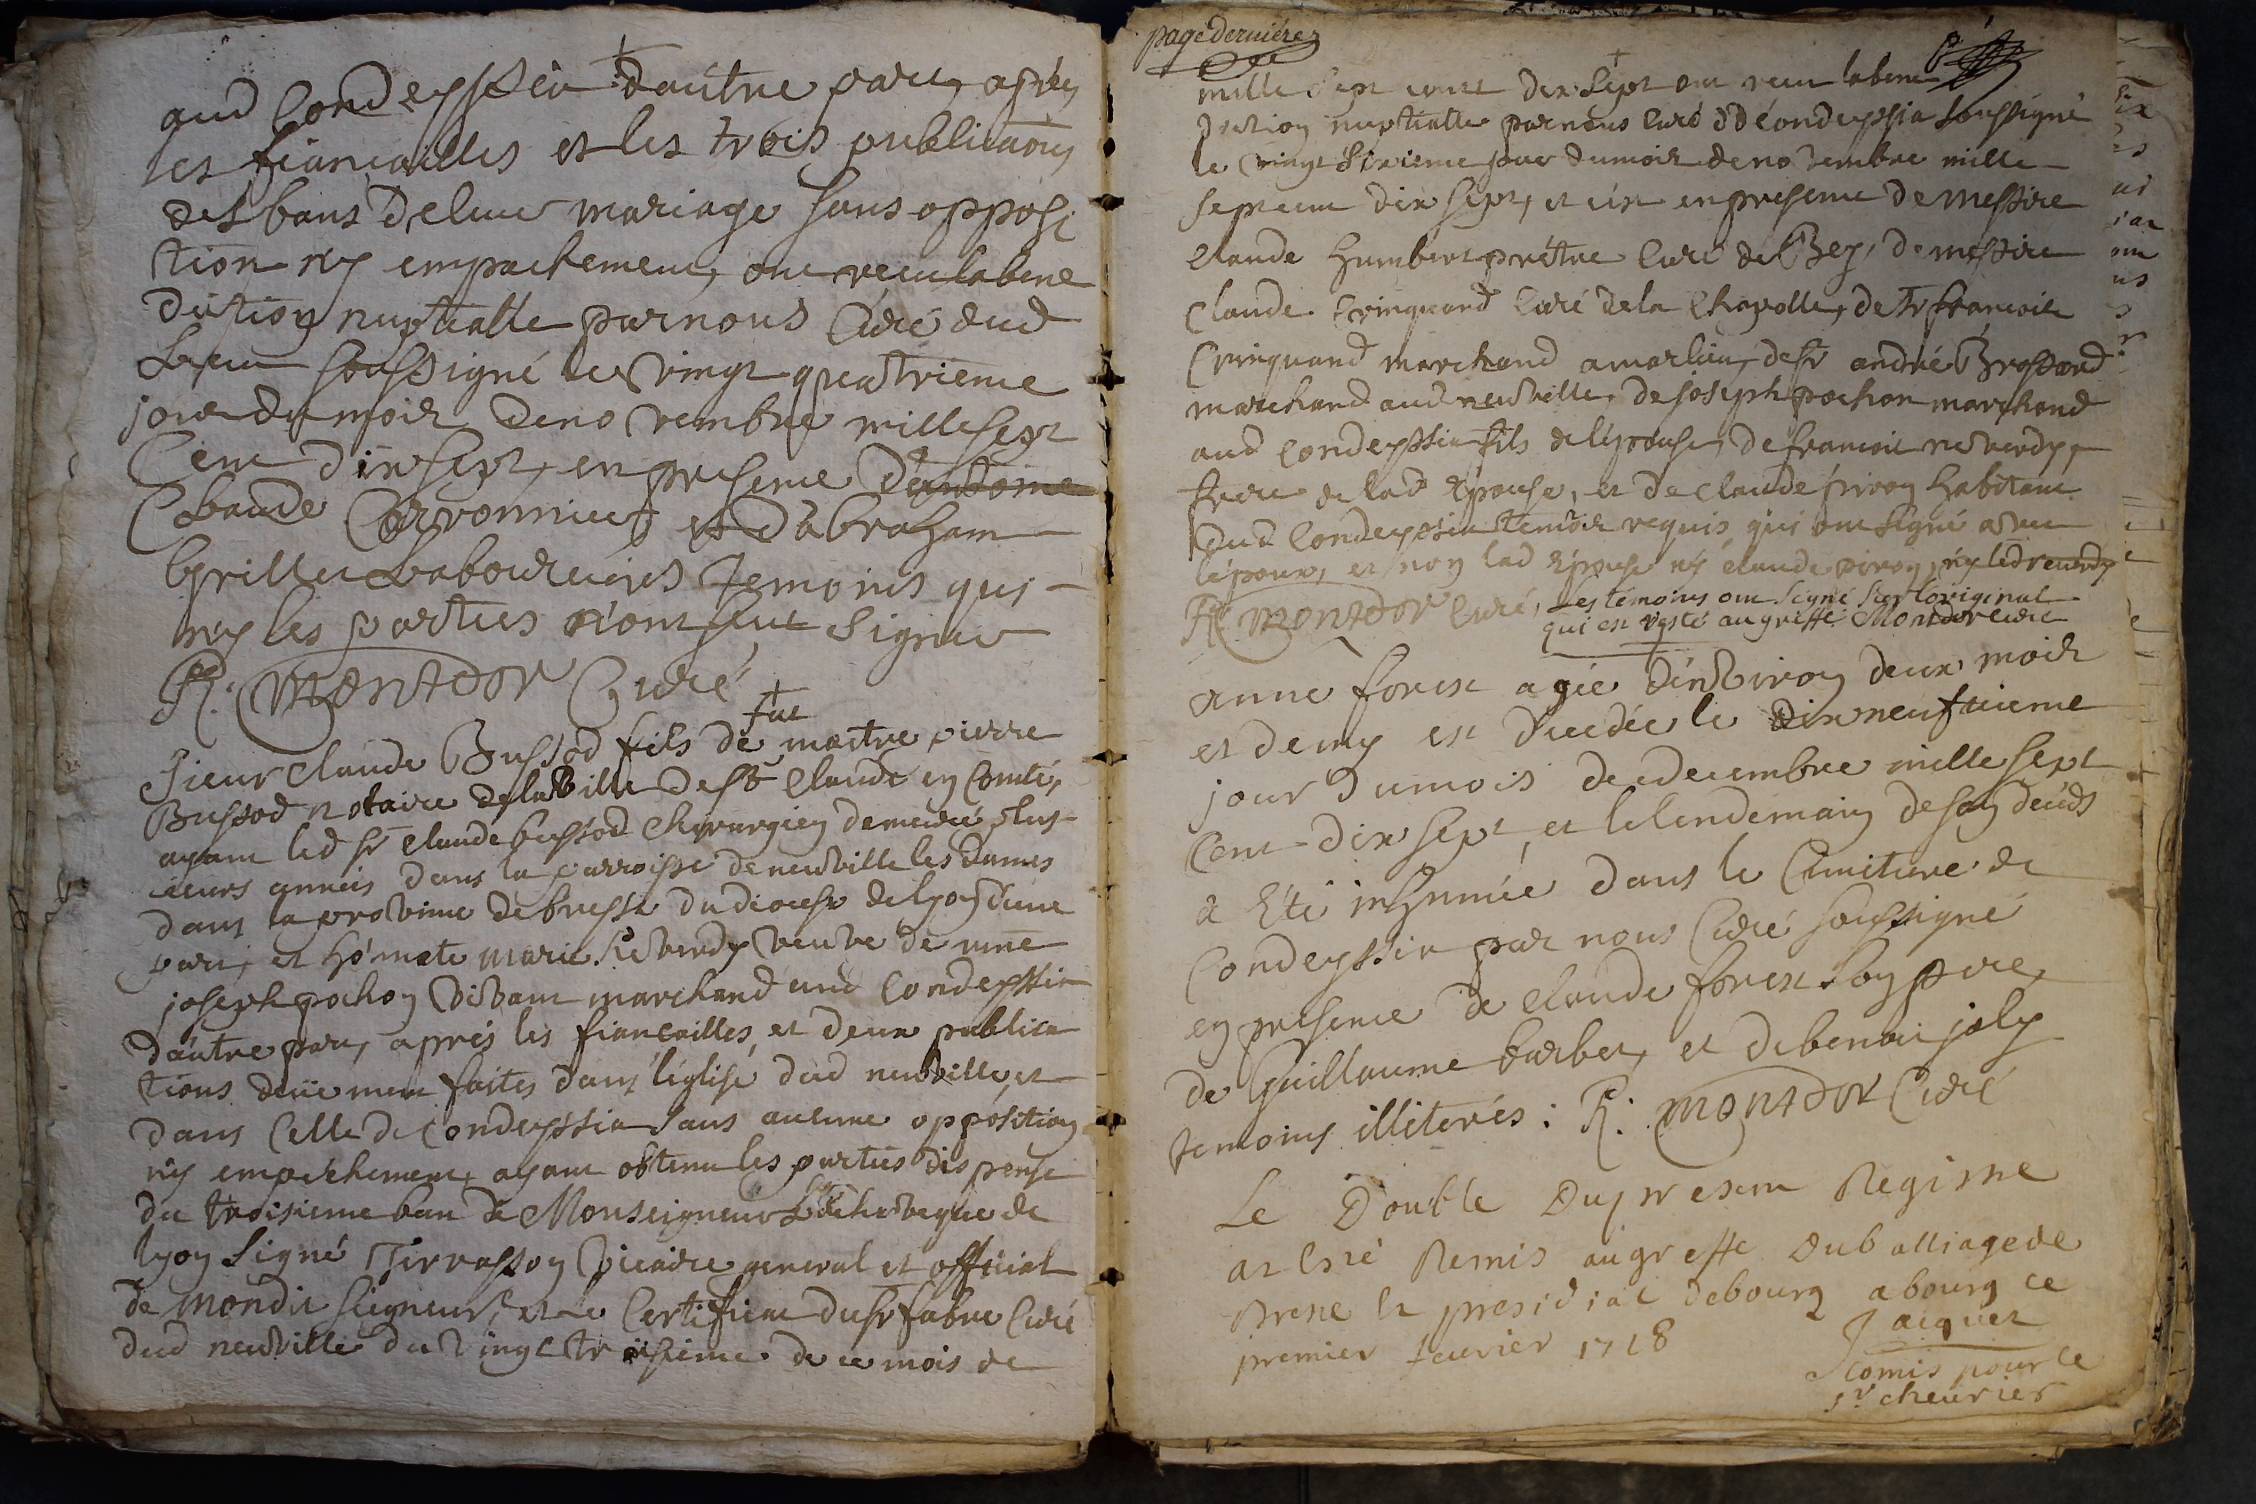 aud Condeyssia d'autre part, aprés
les fiançailles et les trois publications
des bans de leur mariage sans opposi
tion ny empachement, ont receu la bene
diction nuptialle par nous Curé dud
Lieu soussigné le vingt quatrieme
jour du mois de novembre mille sept
Cent dix sept, en presence d'antoine
Claude Carronnier et d'abraham
Grillet Laboureurs temoins qui
ny les parties n'ont sceu signer
R. Montdor Curé
fut
Sieur Claude Bussod fils de maitre pierre
Bussod notaire de la ville de st Claude en Comté,
ayant led sr Claude bussod Chyrurgien demeuré plus
ieurs années dans la parroisse de neuville les dames
dans la province de bresse du diocese de lyon d'une
part, et ho'nnete marie Reverdy veuve de
joseph pochon vivant marchand aud Condeyssia
d'autre part, aprés les fiancailles, et deux publica
tions deüement faites dans l'eglise dud neuville, et
dans Celle de Condeyssia sans aucune opposition
ny empéchement, ayant obtenu les parties dispense
du troisieme ban de Monseigneur L'archeveque de
lyon Signé Terrasson Vicaire general et official
de mondit seigneur, et le Certificat du sr fabre Curé
dud neuville du vingt troisieme de ce mois de
page derniére
mille sept cent dix sept ont receu la bene
diction nuptialle par nous Curé de Condeyssia soussigné
le vingt sixieme jour du mois de novembre mille
sept cent dix sept, et c'est en presence de messire
Claude humbert prétre Curé de Bey, de messire
Claude Cvinquand Curé de la Chapelle, de sr francois
Cvinquand marchand a marlieu, de sr andré Brossard
marchand aud neuville, de joseph pochon marchand
aud Condeyssia fils de l'épouse, de francois reverdy,
frere de lad Epouse, et de Claude piroy habitant
dud Condeyssia temoins requis qui ont signé avec
l'époux, et non lad Epouse ny Claude piroy, ny led reverdy
R. Montdor Curé, les témoins ont signé sur l'original
qui est resté au greffe Montdor curé
anne forest agée d'environ deux mois
et demy est decedée le dix neufuieme
jour du mois de decembre mille sept
Cent dix sept, et le lendemain de son decés
a Eté inhumée dans le Cimitiere de
Condeyssia par nous Curé soussigné
en presence de Claude forest son pere,
de Guillaume barbet, et de benoit joly
temoins illiterés : R. Montdor Curé
Le Double du present Registre
at Esté Remis au greffe du balliage de
Bresse Et presidial de bourg a bourg ce
premier feurier 1718
Jacquet
Comis pour le
sr cheurier